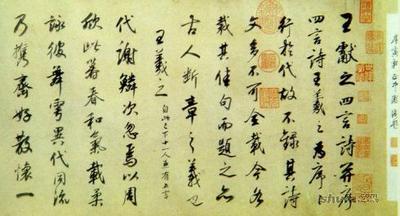 王獻之四言詩并序
四言詩王羲之為序
行於代故不錄其詩
文多不可全載今各
裁其佳句而題之亦
古人斷章之義也
王羲之 自此已下十一人並有五言
代謝鱗次忽焉以周
欣此暮春和氣載柔
詠彼舞雩異代同流
乃攜齊好散懷一